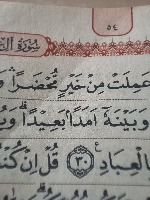 ٥٤
سُورَةُ
عَمِلَتْ مِنْ خَيْرٍ مُّحْضَرًا
وَبَيْنَهُۥٓ أَمَدًۢا بَعِيدًا ۗ
بِالْعِبَادِ ﴿٣٠﴾ قُلْ إِن